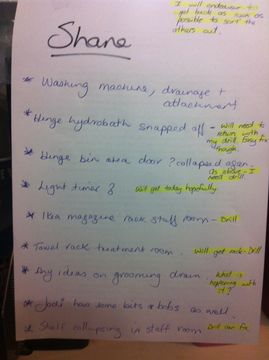 I will endeavour to
get back as soon as
possible to sort the
others out.
Shane
* Washing machine, drainage +
attachment
* Hinge hydrobath snapped off - Will need to
return with
my drill. Easy fix
though.
* Hinge bin area door ? collapsed again. -
as above - I
need drill.
* Light timer ? Will get today hopefully
* Ikea magazine rack staff room - Drill
* Towel rack treatment room. Will get rack - Drill
* Any ideas on grooming drain. What is
happening with
it?
* Jodi has some bits & bobs as well.
* Shelf collapsing in staff room Drill can fix